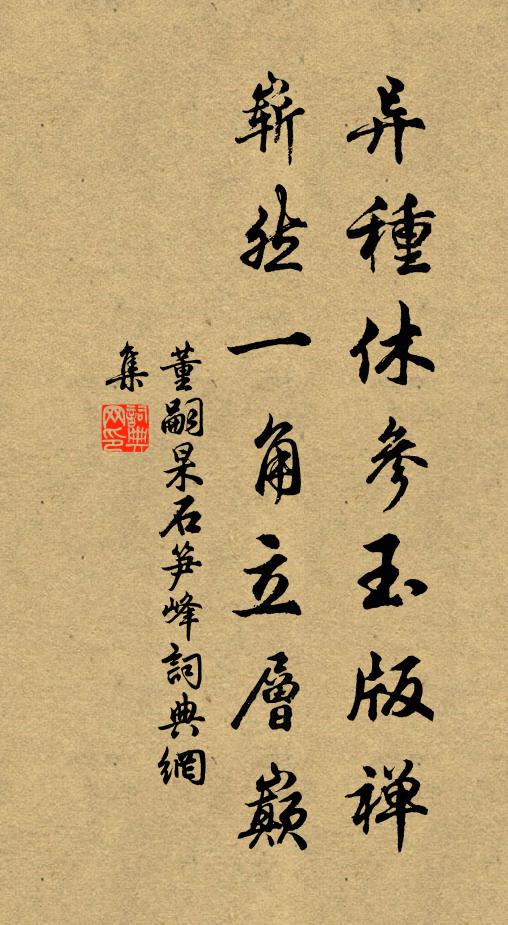 异種休參玉版禅
嶄然一角立層巔
董嗣杲石笋峰詞典網
集
詞典网印